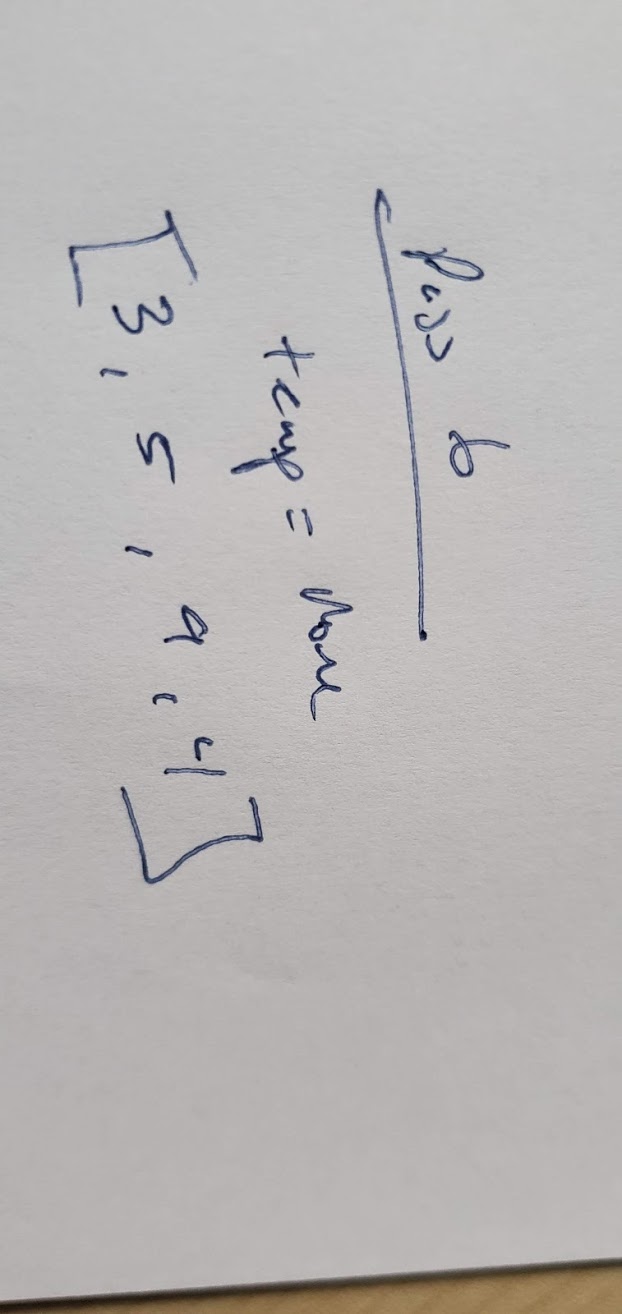 Pass 6
temp = None
[3, 5, 9, 4]